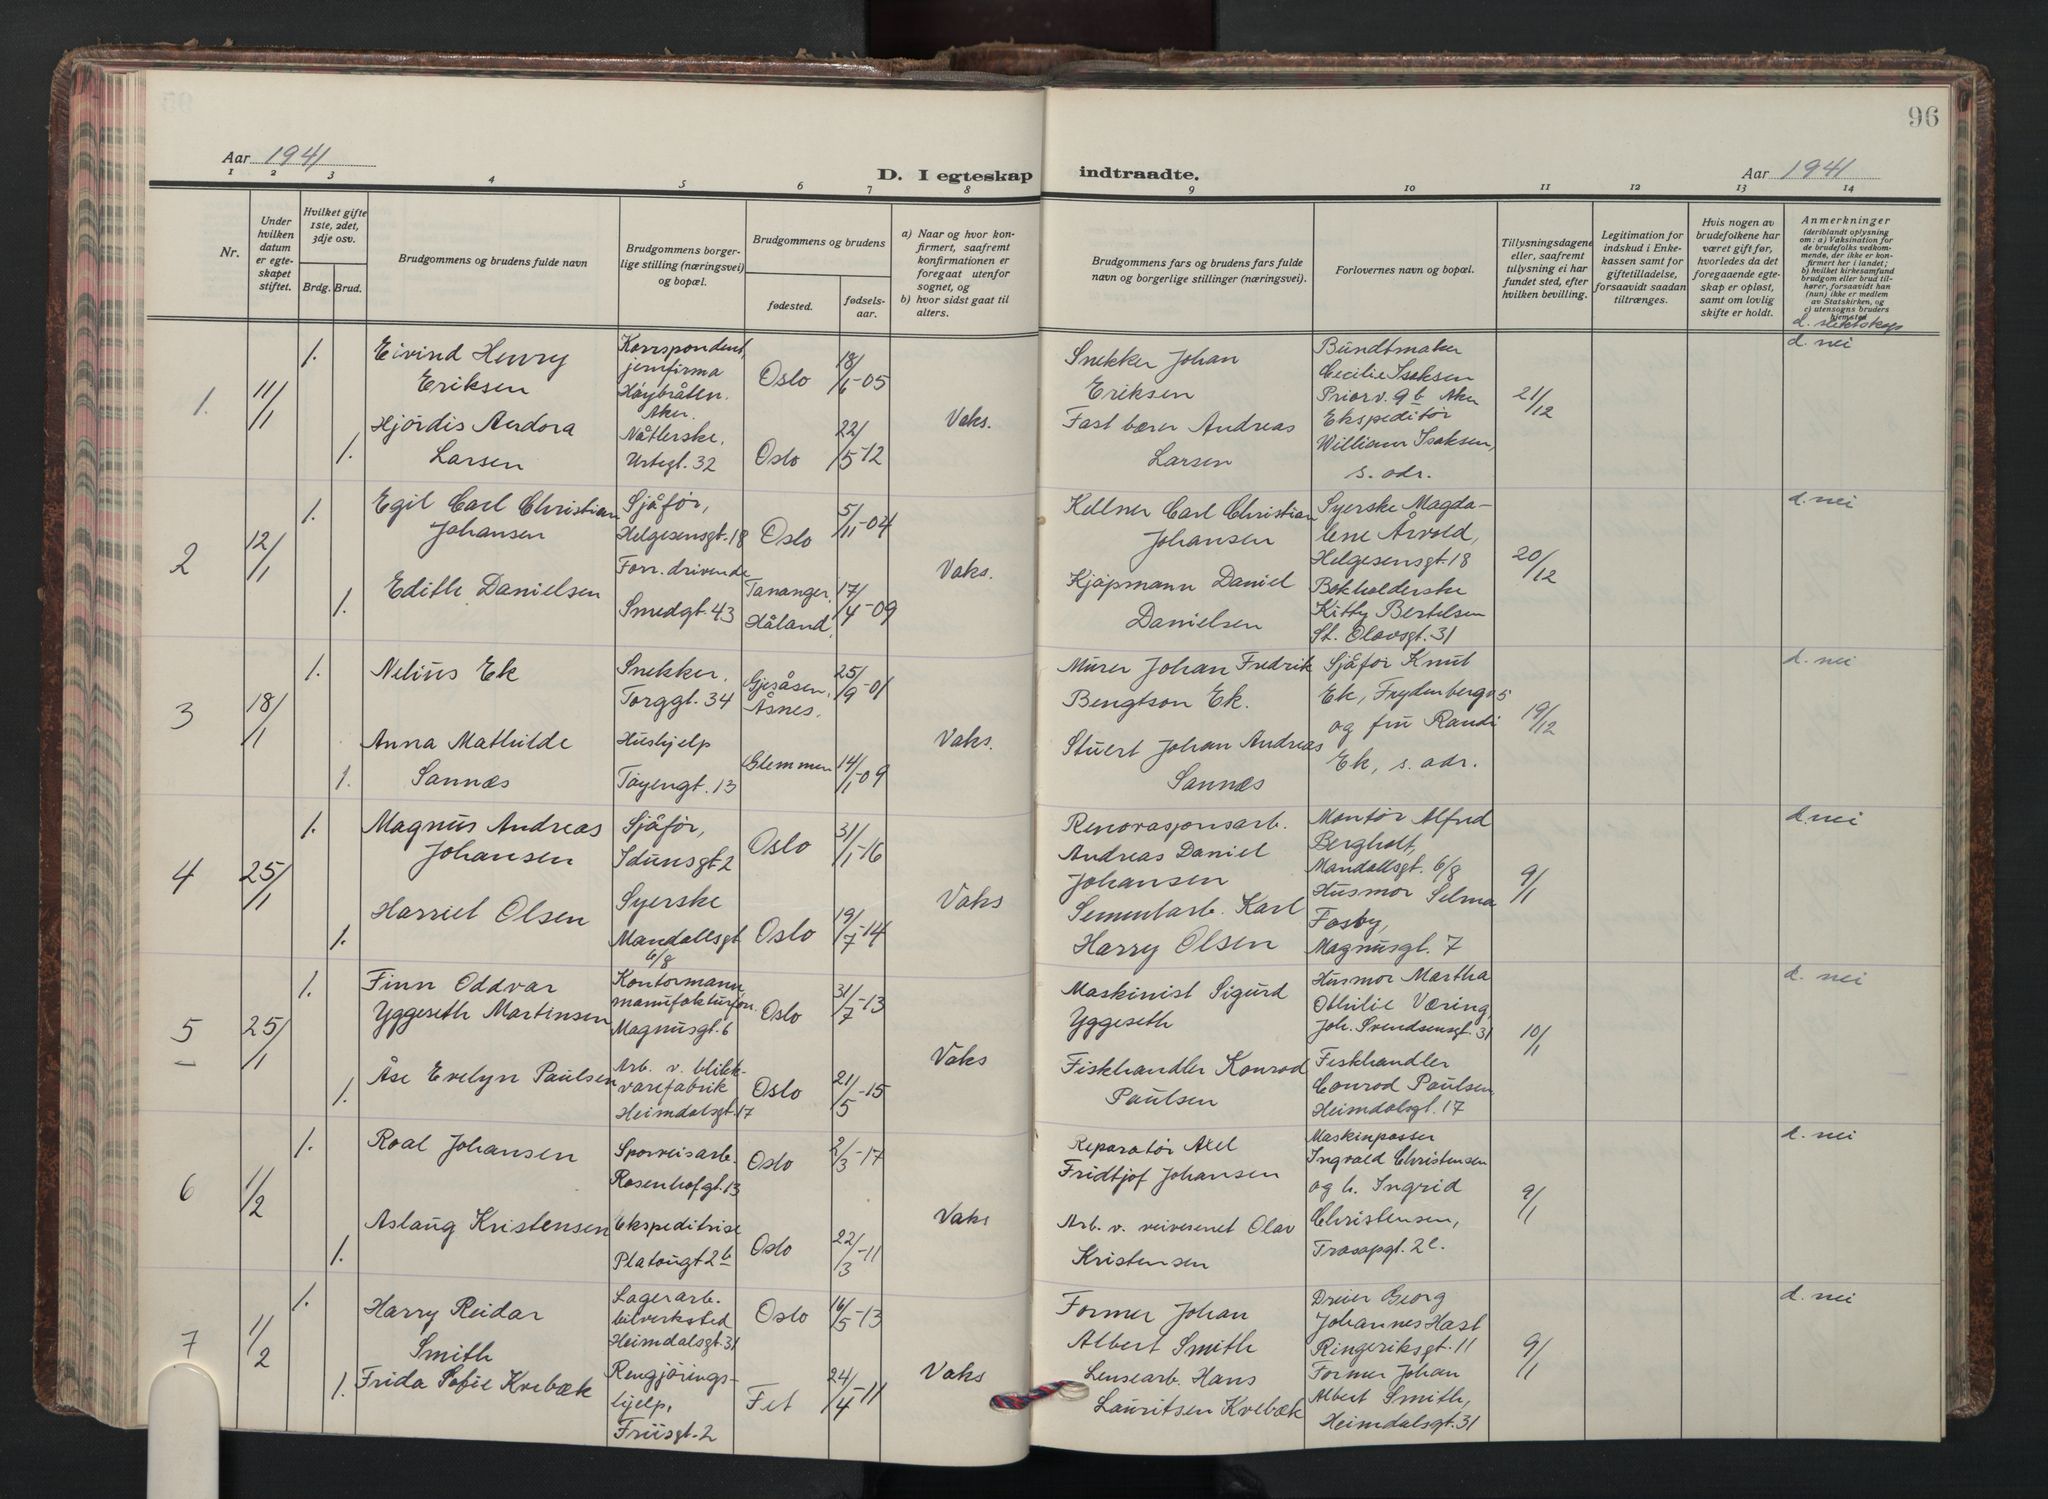 96
Aar 1941
D. I egteskap indtraadte.
Aar 1941
1 2 3 4 5 6 7 8 9 10 11 12 13 14
Nr.
Under
hvilken
datum
er egte-
skapet
stiftet.
Hvilket gifte
1ste, 2det,
3dje osv.
Brdg. Brud.
Brudgommens og brudens fulde navn
Brudgommens borger-
lige stilling (næringsvei)
og bopæl.
Brudgommens og brudens
fødested.
fødsels-
aar.
a) Naar og hvor kon-
firmert, saafremt
konfirmationen er
foregaat utenfor
sognet, og
b) hvor sidst gaat til
alters.
Brudgommens fars og brudens fars fulde
navn og borgerlige stillinger (næringsvei).
Forlovernes navn og bopæl.
Tillysningsdagene
eller, saafremt
tillysning ei har
fundet sted, efter
hvilken bevilling.
Legitimation for
indskud i Enke-
kassen samt for
giftetilladelse,
forsaavidt saadan
tiltrænges.
Hvis nogen av
brudefolkene har
været gift før,
hvorledes da det
foregaaende egte-
skap er opløst,
samt om lovlig
skifte er holdt.
Anmerkninger
(deriblandt oplysning
om: a) Vaksination for
de brudefolks vedkom-
mende, der ikke er kon-
firmert her i landet;
b) hvilket kirkesamfund
brudgom eller brud til-
hører, forsaavidt han
(hun) ikke er medlem
av Statskirken, og
c) utensogns bruders
hjemsted
d. slektskap
1. 11/1
1.
Eivind Henry
Eriksen
Korrspondent,
jernfirma
Høybråten.
Aker.
Oslo
18/6-05
Hjørdis Andora
Larsen
1.
Nåtlerske.
Urtegt. 32
Oslo
22/5-12
Vaks.
Snekker Johan
Eriksen
Fast bærer Andreas
Larsen
Bundtmaker
Cecilie Isaksen
Priorv. 9 b Aker
Ekspeditør
William Isaksen,
s. adr.
21/12
d. nei
2 12/1
1.
Egil Carl Christian
Johansen
Sjåfør,
Helgesensgt. 18
Oslo
5/11-04
Edith Danielsen
1.
Forr. drivende
Smedgt. 43
Tananger,
Håland,
17/4-09
Vaks.
Kellner Carl Christian
Johansen
Kjøpmann Daniel
Danielsen
Syerske Magda-
lene Arvold,
Helgesensgt. 18
Bokholderske
Kitty Bertelsen
St. Olavsgt. 31
20/12
d. nei
3 18/1
1.
Nelius Ek
Snekker.
Torggt. 34
Gjesåsen,
Åsnes.
25/9-01
Anna Mathilde
Sannæs
1.
Hushjelp
Tøyengt. 13
Glemmen
14/1-09
Vaks.
Murer Johan Fredrik
Bengtson Ek.
Stuert Johan Andreas
Sannæs
Sjåfør Knut
Ek, Frydenbergv 5
og fru Randi
Ek, s. adr.
19/12
d. nei
4 25/1
1.
Magnus Andreas
Johansen
Sjåfør,
Idunsgt. 2
Oslo
31/1-16
Harriet Olsen
1.
Syerske
Mandallsgt
6/8
Oslo
19/7-14
Vaks
Renovasjonsarb.
Andreas Daniel
Johansen
Sementarb. Karl
Harry Olsen
Montør Alfred
Bergholt,
Mandallsgt. 6/8
Husmor Selma
Fosby,
Magnusgt. 7
9/1
d. nei
5 25/1
1.
Finn Oddvar
Yggeseth Martinsen
Kontormann
manufakturfor.
Magnusgt. 6
Oslo
31/7-13
Åse Evelyn Paulsen
1.
Arb. v. blikk-
varefabrik
Heimdalsgt. 17
Oslo
21/5-15
Vaks
Maskinist Sigurd
Yggeseth
Fiskhandler Konrad
Paulsen
Husmor Martha
Othilie Væring,
Joh. Svendsensgt. 31
Fiskhandler
Conrad Paulsen,
Heimdalsgt. 17
10/1
d. nei
6 1/2
1.
Roal Johansen
Sporveisarb.
Rosenhofgt. 13
Oslo
2/3-17
Aslaug Kristensen
1.
Ekspeditrise
Platougt 2b
Oslo
22/3-11
Vaks
Reparatør Axel
Fridtjof Johansen
Arb. v. veivesenet Olav
Kristensen
Maskinpasser
Ingvald Christensen
og h. Ingrid
Christensen,
2c.
9/1
d. nei
7 1/2
1.
Harry Reidar
Smith
Lagerarb.
bilverksted
Heimdalsgt. 31
Oslo
16/5-13
Frida Sofie Krebæk
1.
Rengjørings-
hjelp,
Friisgt. 2
Fet
24/4-11
Vaks
Former Johan
Albert Smith
Lensearb. Hans
Lauritsen Krebæk
Dreier Georg
Johannes Hast
Ringeriksgt. 11
Former Johan
Albert Smith,
Heimdalsgt. 31
9/1
d. nei